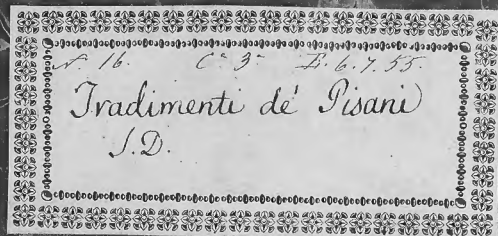 N. 16. C.e 3.e E. 6. 7. 55.
Tradimenti dé Pisani
S. D.